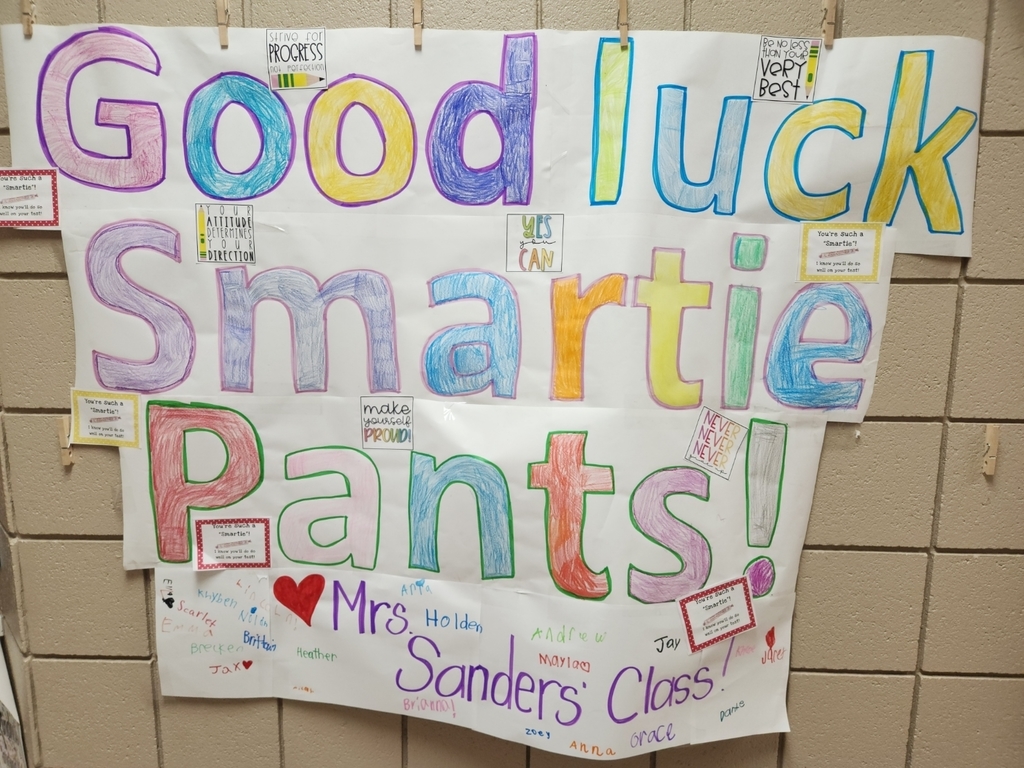 Good luck
STRIVE FOR
PROGRESS
not perfection
BE NO LESS
THAN YOUR
VERY
BEST!
You're Such a
"Smartie"!
I know you'll do so
well on your test!
YOUR
ATTITUDE
DETERMINES
YOUR
DIRECTION
YES
you
CAN
You're Such a
"Smartie"!
I know you'll do so
well on your test!
Smartie
You're Such a
"Smartie"!
I know you'll do so
well on your test!
make
yourself
PROUD!
NEVER
NEVER
NEVER
Pants!
You're Such a
"Smartie"!
I know you'll do so
well on your test!
You're Such a
"Smartie"!
I know you'll do so
well on your test!
Mrs.
Sanders' Class!
Scarlet
Emma
Brecken
Jax
Brittain
Heather
Holden
Andrew
Mayla
Jay
Brianna!
Zoey
Anna
Grace